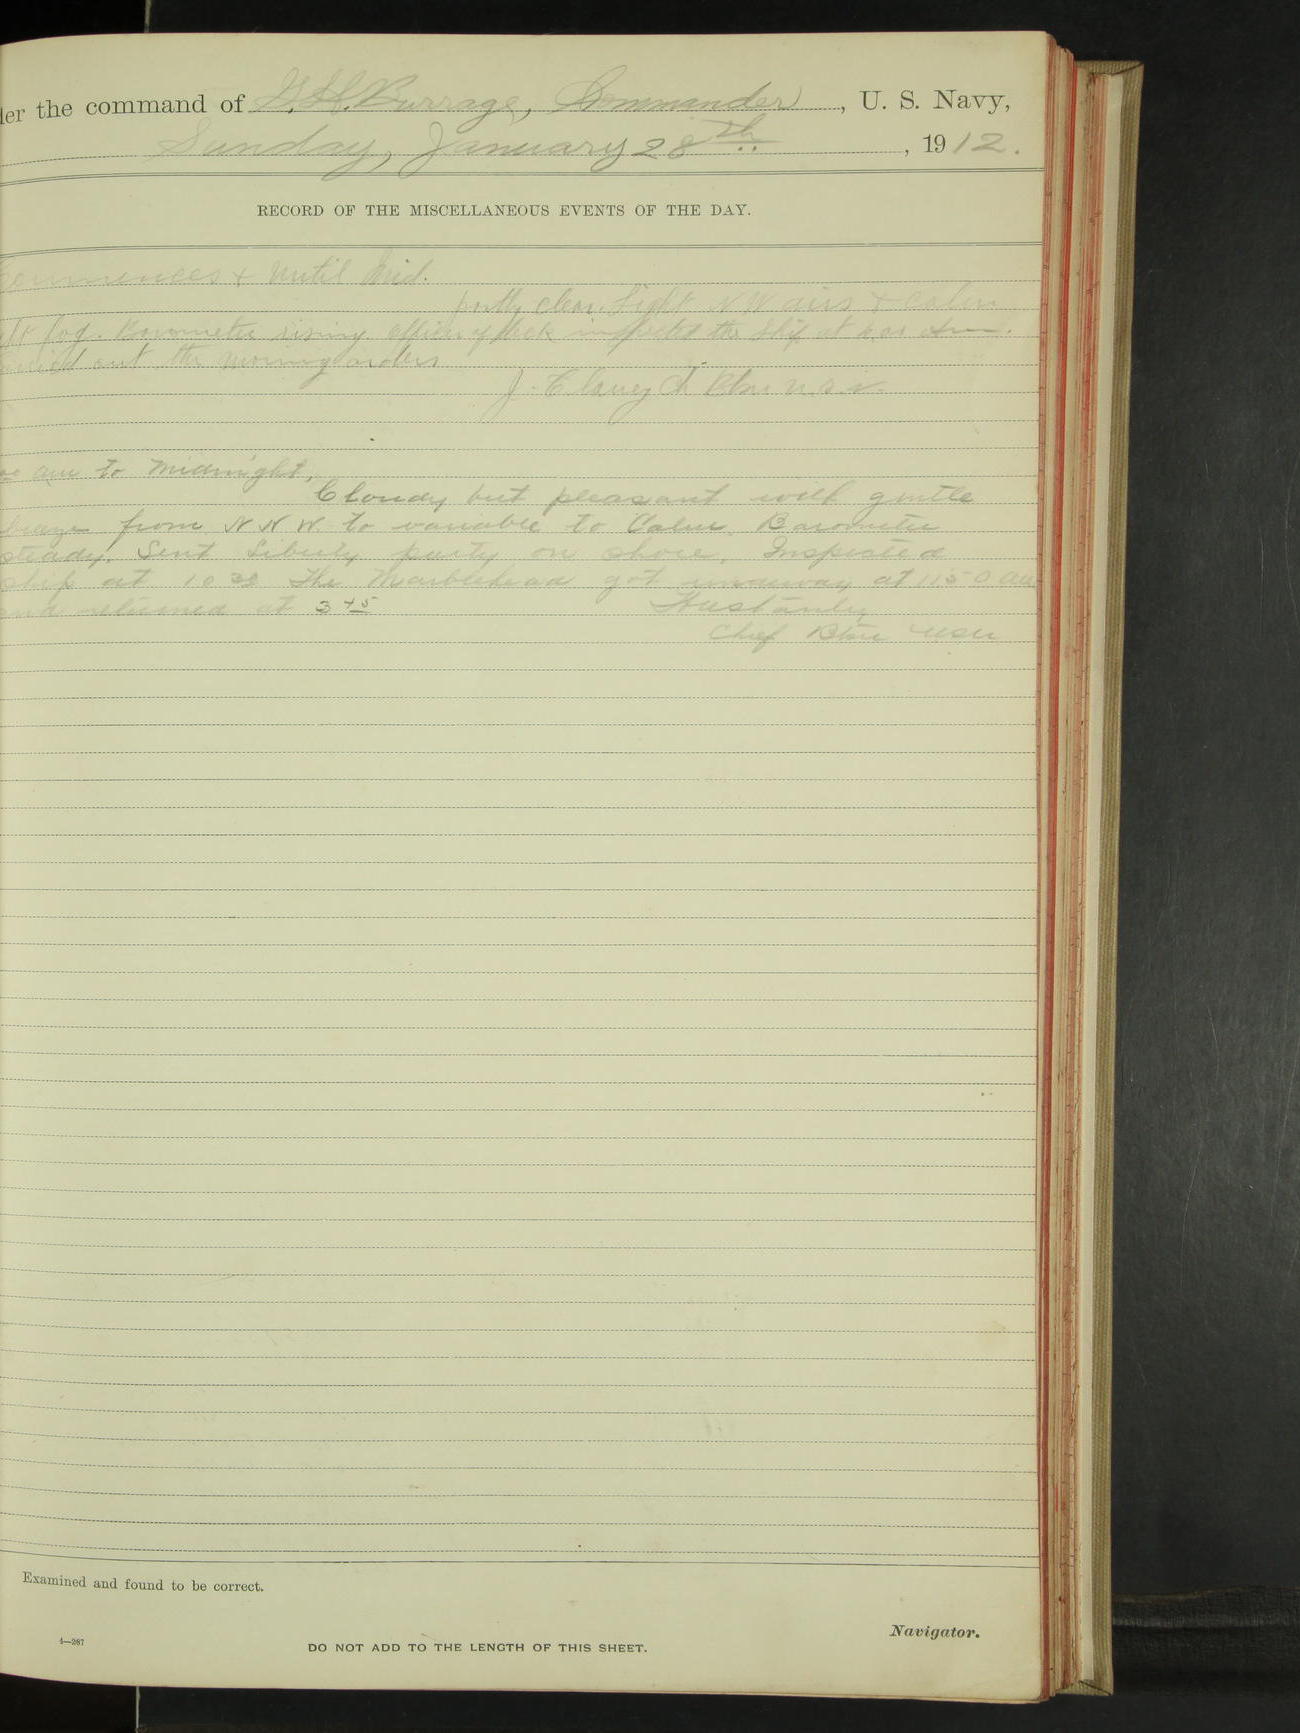 der the command of G. H. Burrage, Commander, U. S. Navy,
Sunday, January 28th, 1912.
RECORD OF THE MISCELLANEOUS EVENTS OF THE DAY.
commences & until Mid.
partly clear. Light N W airs & calm
fog. Barometer rising officer of deck inspected the Ship at
out the morning orders
J. Clancy Ch Btsn U.S.N.
am to Midnight,
Cloudy but pleasant with gentle
from N N W. to variable to Calm. Barometer
steady. Sent Liberty party on shore. Inspected
ship at 10 30 The Marblehead got underway at 11 50 am
and returned at 3 45
Chief Btsn USN
Examined and found to be correct.
Navigator.
4—267
DO NOT ADD TO THE LENGTH OF THIS SHEET.